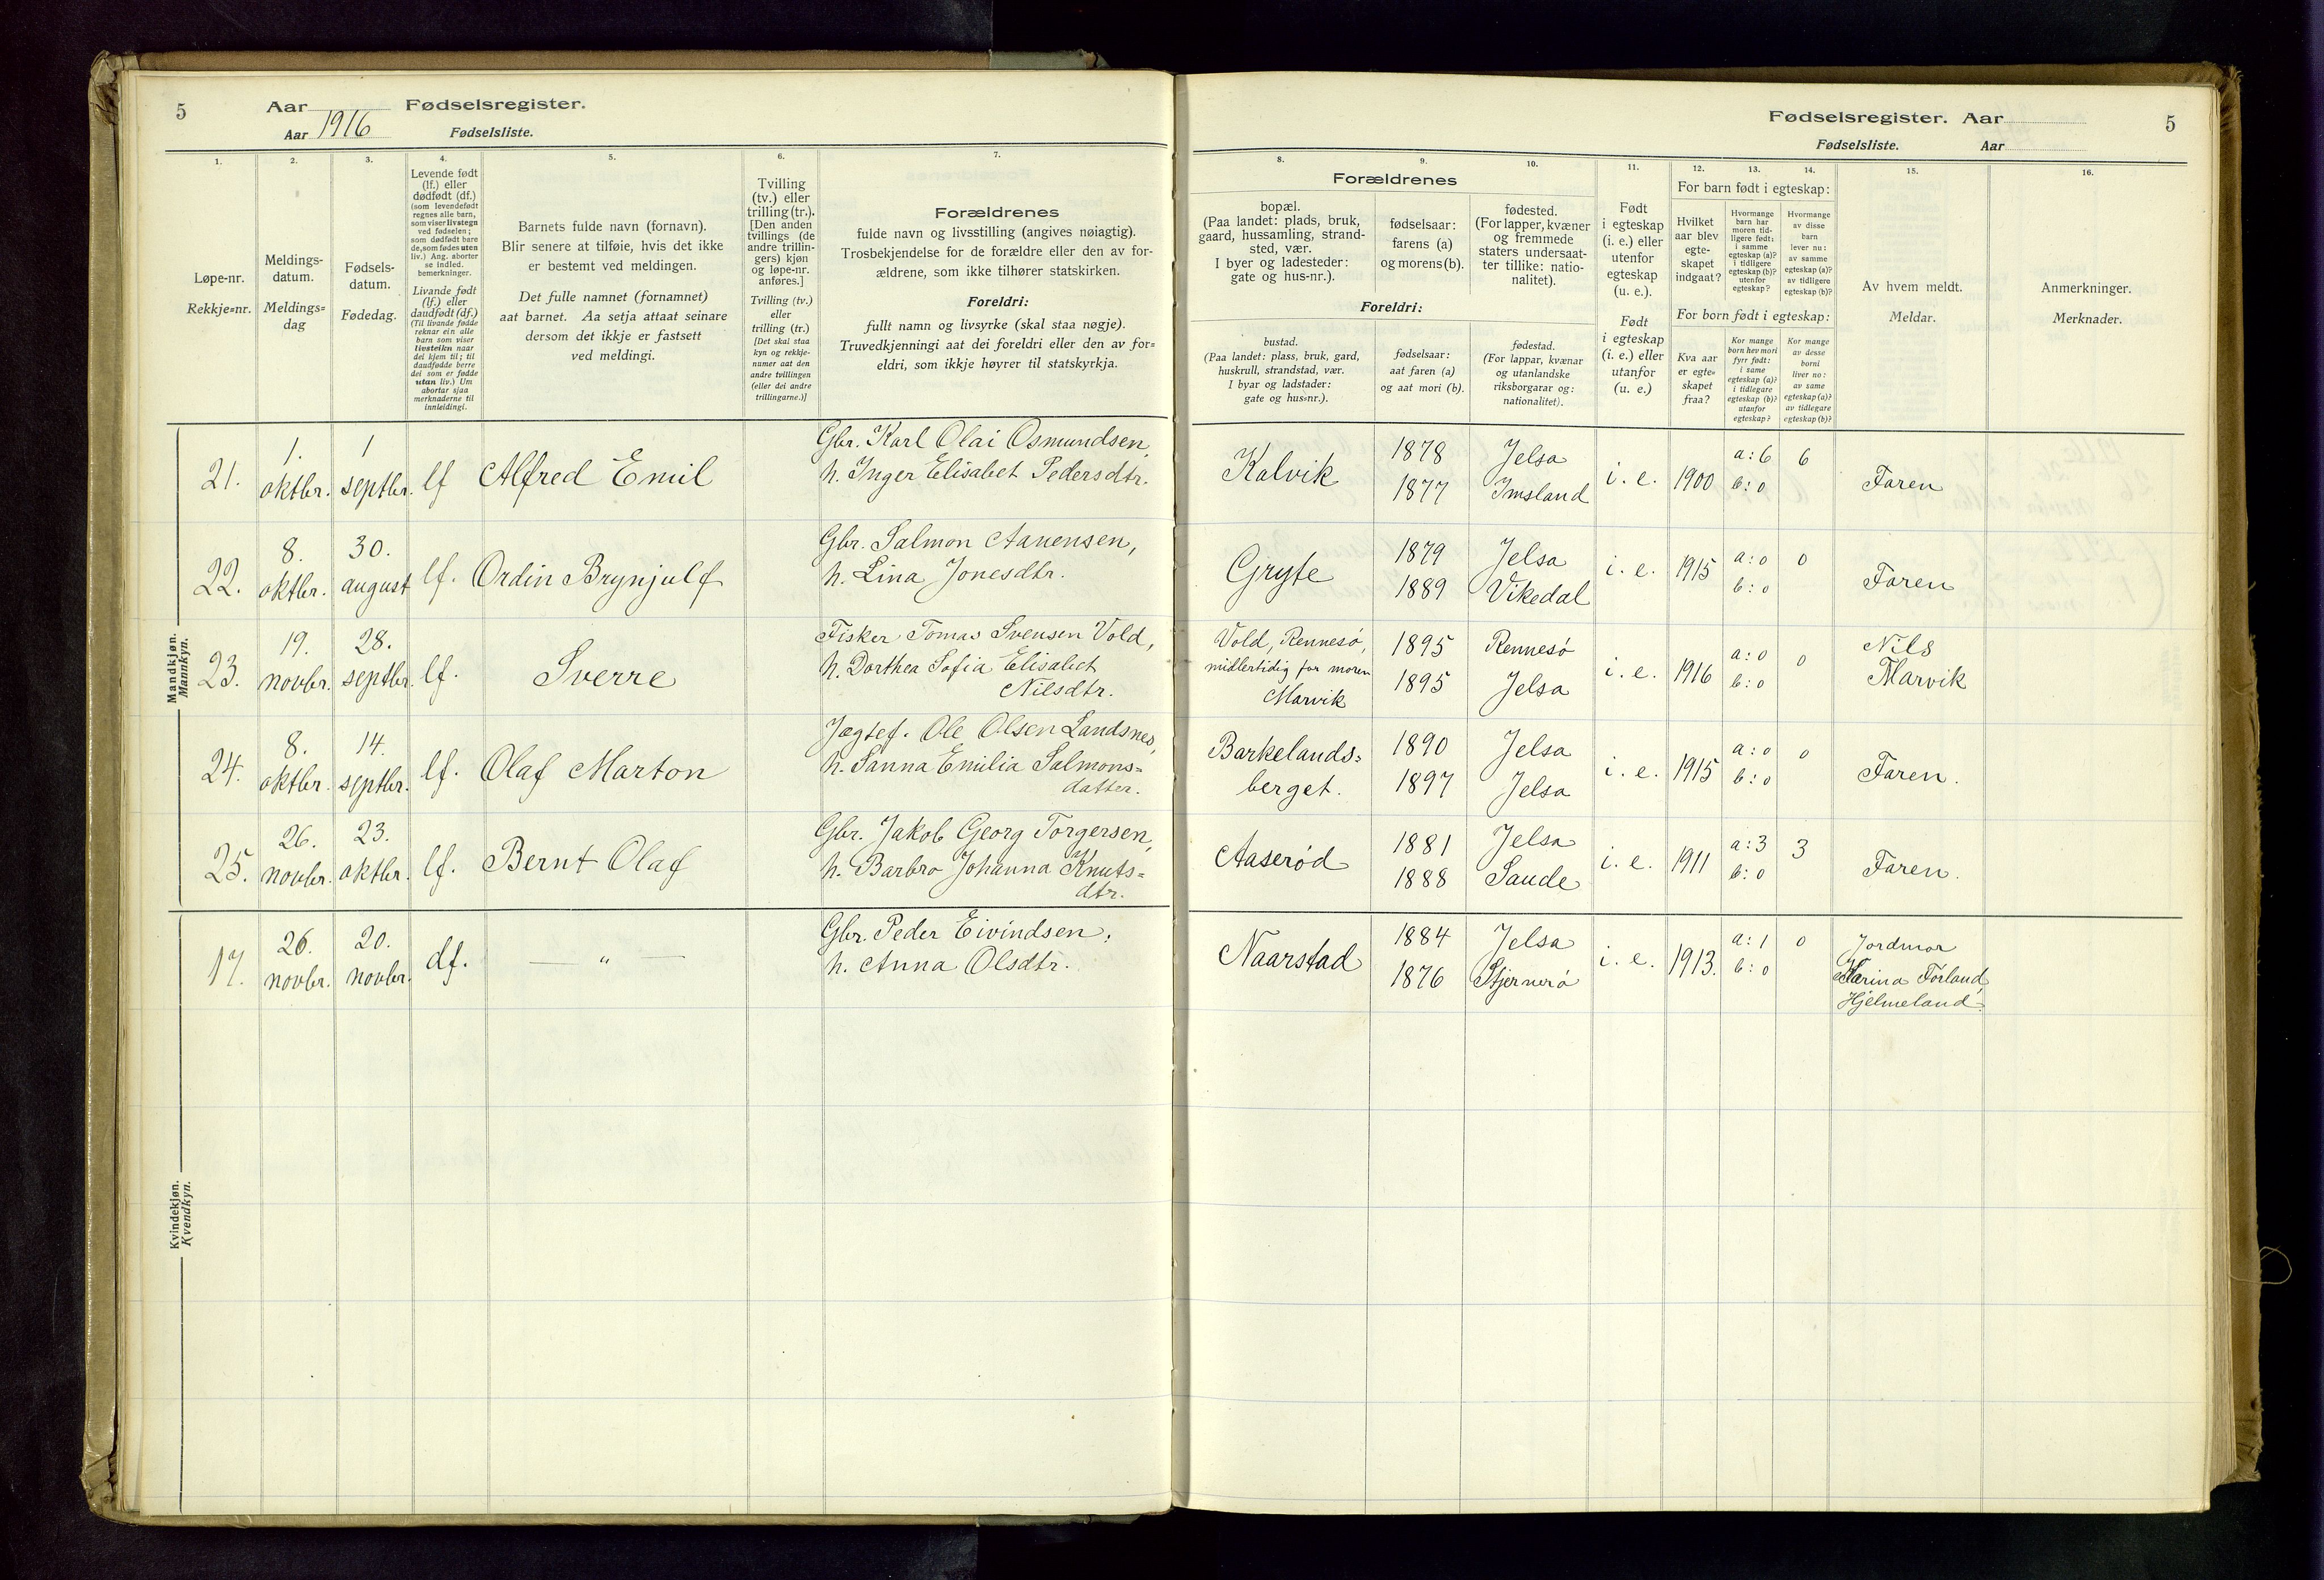 5 Aar Fødselsregister.
Aar 1916 Fødselsliste.
Fødselsregister. Aar 5
Fødselsliste. Aar
1. 2. 3. 4. 5. 6. 7.
Løpe-nr.
Rekkje=nr.
Meldings-
datum.
Meldings=
dag
Fødsels-
datum.
Fødedag.
Levende født
(lf.) eller
dødfødt (df.)
(som levendefødt
regnes alle barn,
som viser livstegn
ved fødselen;
som dødfødt bare
de, som fødes uten
liv.) Ang. aborter
se indled.
bemerkninger.
Livande født
(lf.) eller
daudfødt (df.)
(Til livande fødde
reknar ein alle
barn som viser
livsteikn naar
dei kjem til; til
daudfødde berre
dei som er fødde
utan liv.) Um
abortar sjaa
merknaderne til
innleidingi.
Barnets fulde navn (fornavn).
Blir senere at tilføie, hvis det ikke
er bestemt ved meldingen.
Det fulle namnet (fornamnet)
aat barnet. Aa setja attaat seinare
dersom det ikkje er fastsett
ved meldingi.
Tvilling
(tv.) eller
trilling (tr.).
[Den anden
tvillings (de
andre trillin-
gers) kjøn
og løpe-nr.
anføres.]
Tvilling (tv.)
eller
trilling (tr.)
[Det skal staa
kyn og rekkje-
numer aat den
andre tvillingen
(eller dei andre
trillingarne.)]
Forældrenes
fulde navn og livsstilling (angives nøiagtig).
Trosbekjendelse for de forældre eller den av for-
ældrene, som ikke tilhører statskirken.
Foreldri:
fullt namn og livsyrke (skal staa nøgje).
Truvedkjenningi aat dei foreldri eller den av for=
eldri, som ikkje høyrer til statskyrkja.
8. 9. 10. 11. 12. 13. 14. 15. 16.
Forældrenes
bopæl.
(Paa landet: plads, bruk,
gaard, hussamling, strand-
sted, vær.
I byer og ladesteder:
gate og hus-nr.).
fødselsaar:
farens (a)
og morens (b).
fødested.
(For lapper, kvæner
og fremmede
staters undersaat-
ter tillike: natio-
nalitet).
Foreldri:
bustad.
(Paa landet: plass, bruk, gard,
huskrull, strandstad, vær.
I byar og ladstader:
gate og hus=nr.).
fødselsaar:
aat faren (a)
og aat mori (b).
fødestad.
(For lappar, kvænar
og utanlandske
riksborgarar og:
nationalitet).
Født
i egteskap
(i. e.) eller
utenfor
egteskap
(u. e.).
Født
i egteskap
(i. e.) eller
utanfor
(u. e.)
For barn født i egteskap:
Hvilket
aar blev
egte-
skapet
indgaat?
Hvormange
barn har
moren tid-
ligere født:
i samme
egteskap (a)?
i tidligere
egteskap (b)?
utenfor
egteskap?
Hvormange
av disse
barn
lever nu:
av samme
egteskap (a)?
av tidligere
egteskap (b)?
For born født i egteskap:
Kva aar
er egte=
skapet
fraa?
Kor mange
born hev mori
fyrr født:
i same
egteskap (a)?
i tidlegare
egteskap (b)?
utanfor
egteskap?
Kor mange
av desse
borni
liver no:
av same
egteskap (a)?
av tidlegare
egteskap (b)?
Av hvem meldt.
Meldar.
Anmerkninger.
Merknader.
Mandkjøn.
Mannkyn.
21. 1. oktbr. 1 septbr. lf Alfred Emil
Gbr. Karl Olai Osmundsen,
h. Inger Elisabet Pedersdtr.
Kalvik 1878 Jelsa i. e. 1900 a: 6 6 Faren
1877 Imsland b: 0
22. 8. oktbr. 30. august lf. Ordin Brynjulf
Gbr. Salmon Aanensen,
h. Lina Jonesdtr.
Gryte 1879 Jelsa i. e. 1915 a: 0 0 Faren
1889 Vikedal b: 0
23. 19. novbr. 28. septbr. lf. Sverre
Fisker Tomas Svensen Vold,
h. Dorthea Sofia Elisabet
Nilsdtr.
Vold, Rennesø, 1895 Rennesø i. e. 1916 a: 0 0 Nils
midlertidig for moren
Marvik 1895 Jelsa b: 0 Marvik
24. 8. oktbr. 14. septbr. lf. Olaf Marton
Jægtef. Ole Olsen Landsnes,
h. Sanna Emilia Salmons=
datter.
Barkelands= 1890 Jelsa i. e. 1915 a: 0 0 Faren.
berget. 1897 Jelsa b: 0
25. 26. novbr. 23. oktbr. lf. Bernt Olaf
Gbr. Jakob Georg Torgersen,
h. Barbro Johanna Knuts=
dtr.
Aaserød 1881 Jelsa i. e. 1911 a: 3 3 Faren.
1888 Saude b: 0
Kvindekjøn.
Kvendkyn.
17. 26. novbr. 20. novbr. df. — " —
Gbr. Peder Eivindsen,
h. Anna Olsdtr.
Naarstad 1884 Jelsa i. e. 1913. a: 1 0 Jordmor
1876 Stjernerø b: 0 Karina Førland,
Hjelmeland.